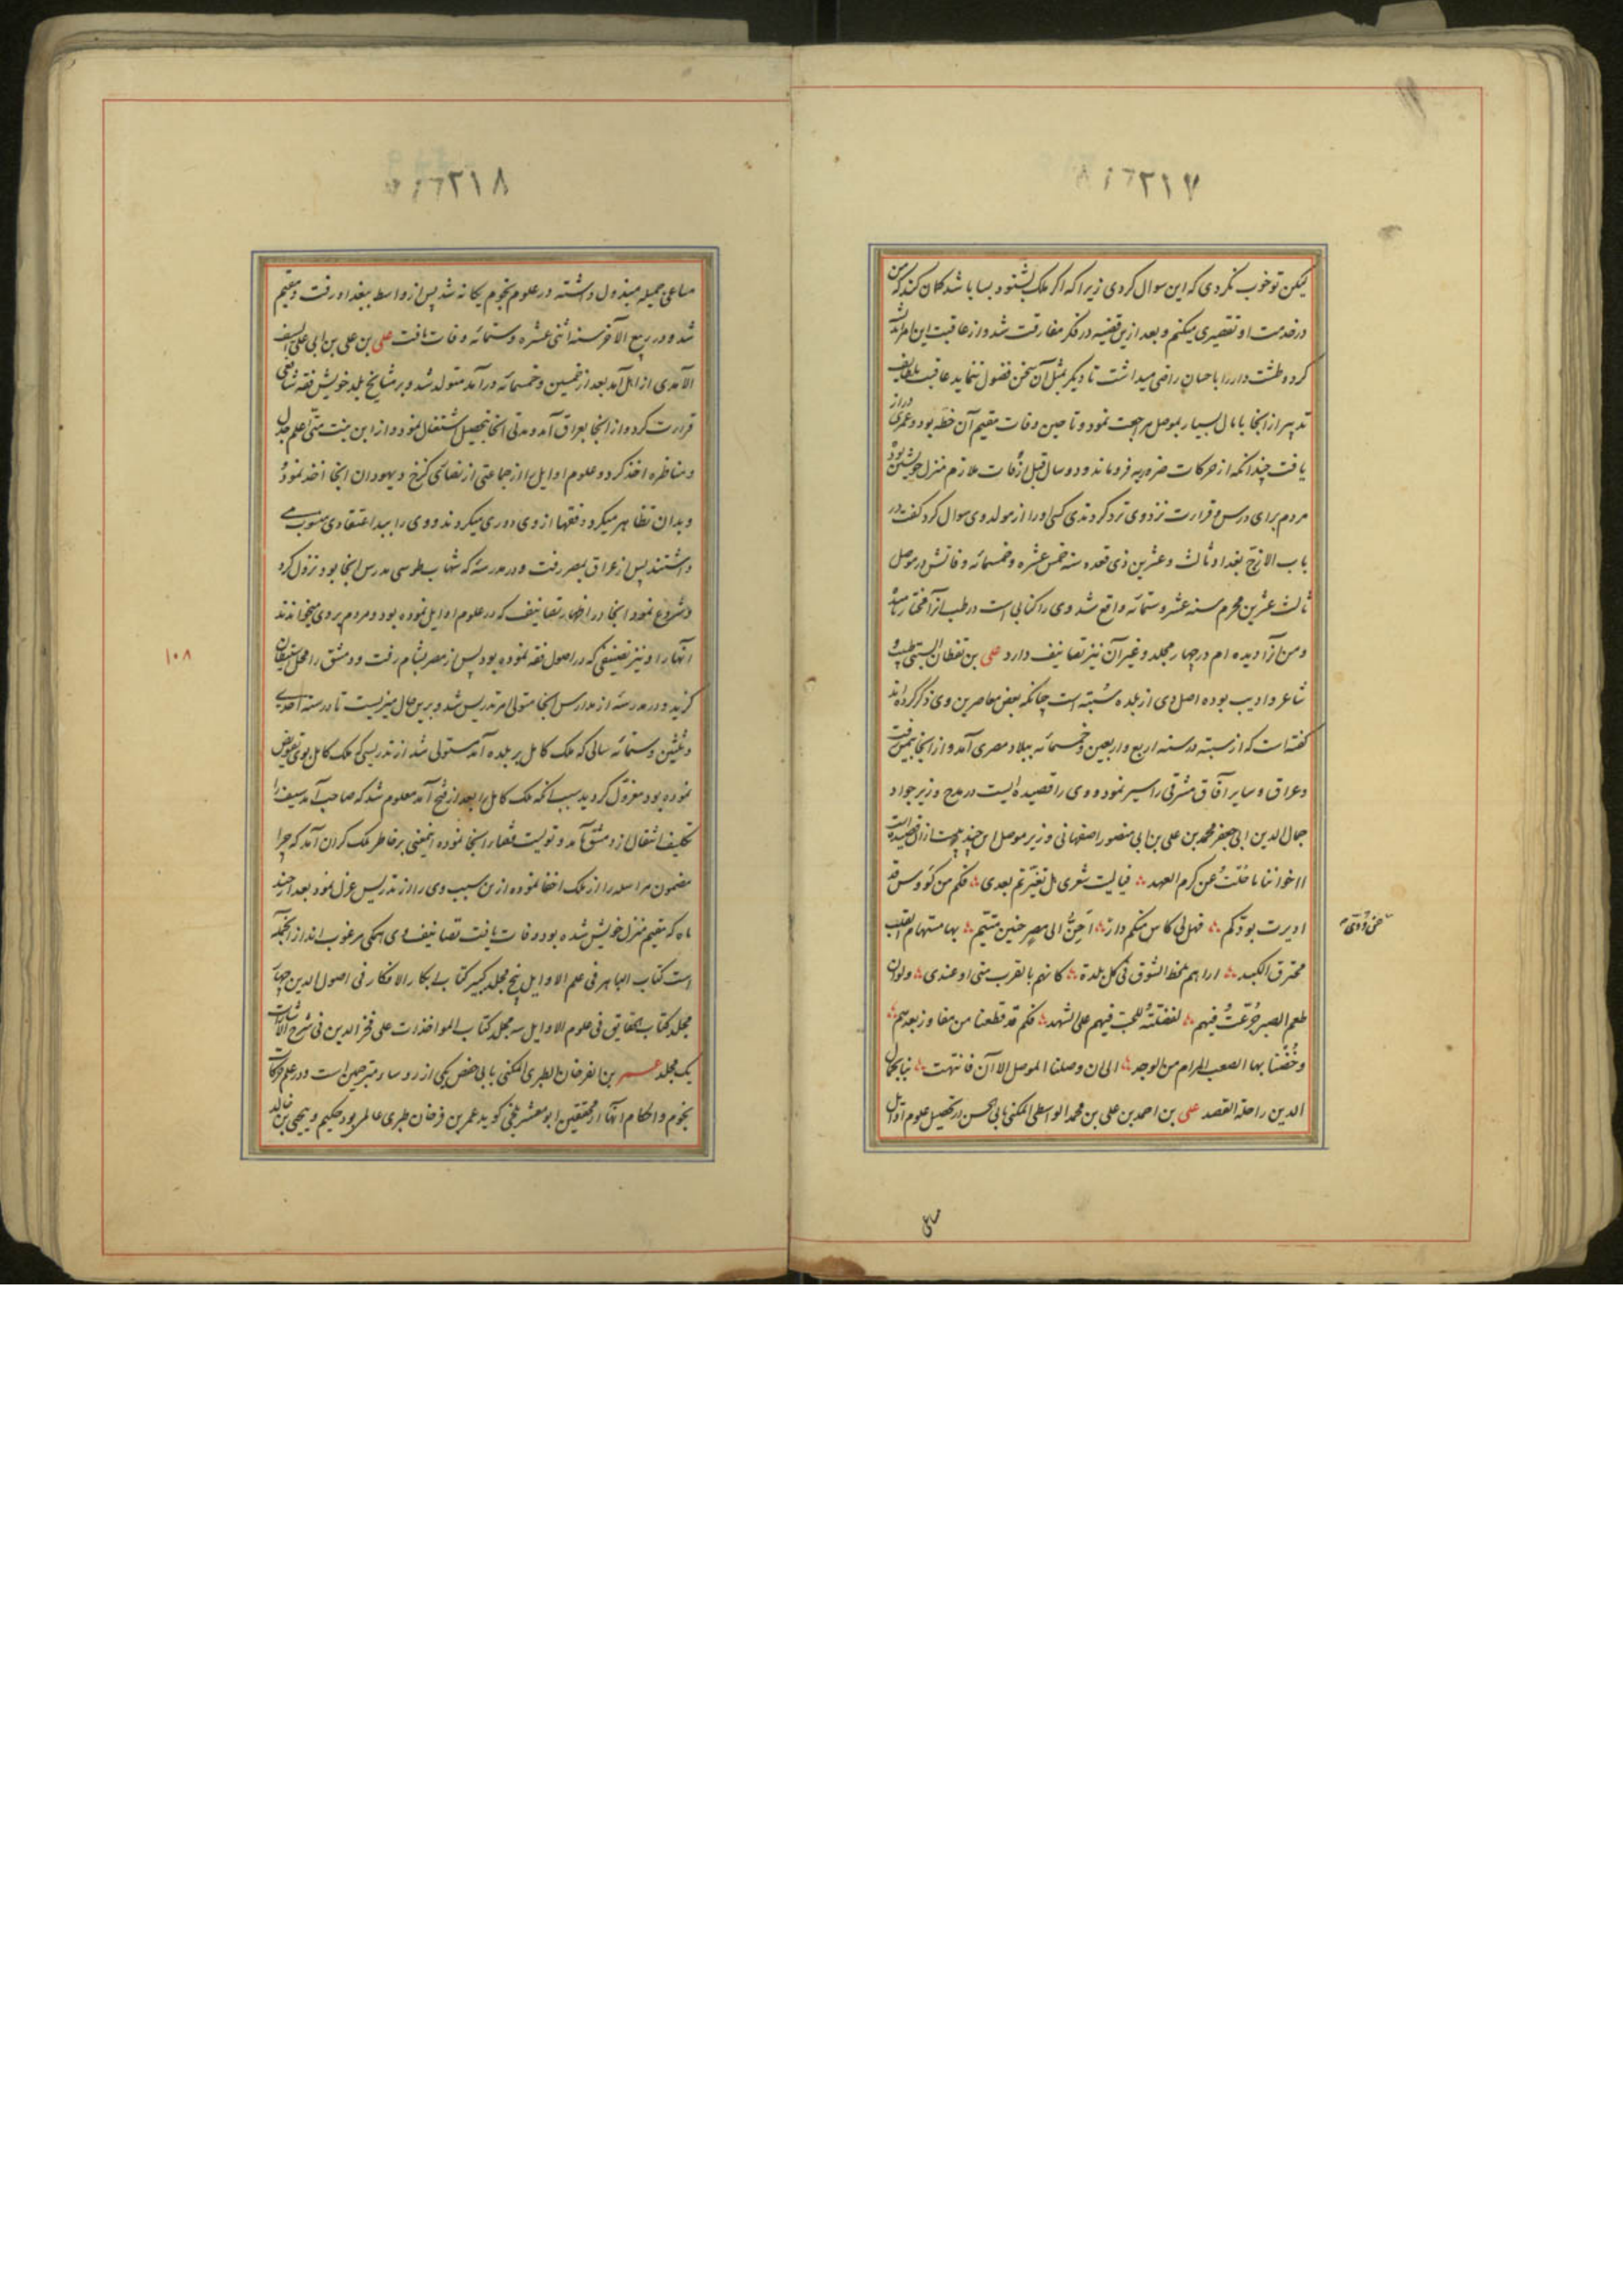 ٢١٧
لیکن تو خوب نکردی که این سوال کردی زیرا که اگر ملک بشنود بسا باشد گمان کند که من
در خدمت او تقصیری میکنم و بعد ازین قضیه در فکر مفارقت شد و از عاقبت این امر
کرد و طشت دار را باحسان راضی میداشت تا دیگر بمثل آن سخن فضول ننماید عاقبت بلطایف
تدبیر از انجا با مال بسیار بموصل مراجعت نمود و تا حین وفات مقیم آن خطه بود و عمری دراز
یافت چندانکه از حرکات ضروریه فروماند و دو سال قبل از وفات ملازم منزل خویش بود
مردم برای درس و قرارت نزد وی تردد کردندی کسی او را از مولد وی سوال کرد گفت در
باب الازج بغداد ثالث و عشرین ذی قعده سنه خمس عشره و خمسمائه و فاتش در موصل
ثالث عشرین محرم سنه عشر و ستمائه واقع شد وی را کتابی است در طب آنرا مختار نامیده
و من آنرا دیده ام در چهار مجلد و غیر آن نیز تصانیف دارد علی بن یقظان السبتی طبیب و
شاعر و ادیب بوده اصل وی از بلده سبته است چنانکه بعض معاصرین وی ذکر کرده اند
گفته است که از سبته در سنه اربع و اربعین و خمسمائه ببلاد مصری آمد و از انجا بیمن رفت
و عراق و سایر آفاق مشرقی را سیر نمود و وی را قصیده ایست در مدح وزیر جواد
جمال الدین ابی جعفر محمد بن علی بن ابی منصور اصفهانی وزیر موصل این چند بیت از ان قصیده است
ااخواننا ما حلت عن کرم العهد فیا لیت شعری هل تغیرتم بعدی فکم من کؤوس قد
ادیرت بودکم فهل لی کاس منکم دار احن الی مصر حنین متیم بها مستهام القلب
محترق الکبد اراهم بلحظ الشوق فی کل بلدة کانهم بالقرب منی او عندی ولو ان
طعم الصبر جرعت فیهم لفضلته للحب فیهم علی الشهد فکم قد قطعنا من مفاوز بعدهم
وخضنا بها الصعب المرام من الوجد الی ان وصلنا الموصل الاآن فانتهت بنا بجمال
الدین راحلة القصد علی بن احمد بن علی بن محمد الواسطی المکنی بابی الحسن در تحصیل علوم اوایل
٢١٨
مساعی جمیله مبذول داشته در علوم نجوم یگانه شد پس از واسط ببغداد رفت و مقیم
شد و در ربیع الآخر سنه اثنی عشره و ستمائه وفات یافت علی بن علی بن ابی علی السیف
الآمدی از اهل آمد بعد از خمسین و خمسمائه در آمد متولد شد و بر مشایخ بلد خویش فقه شافعی
قرارت کرد و از انجا بعراق آمد و مدتی انجا بتحصیل اشتغال نمود و از ابن بنت منی علم جدل
و مناظره اخذ کرد و علوم اوایل را از جماعتی از نصاری کرخ و یهودان انجا اخذ نمود و
و بدان تظاهر میکرد و فقها از وی دوری میکردند و وی را ببد اعتقادی منسوب می
داشتند پس از عراق بمصر رفت و در مدرسه که شهاب طوسی مدرس انجا بود نزول کرد
و شروع نمود انجا در اظهار تصانیف که در علوم اوایل نموده بود و مردم بر وی میخواندند
آنها را و نیز تصنیفی که در اصول فقه نموده بود پس از مصر بشام رفت و دمشق را محل استیطان
گزید و در مدرسه از مدارس انجا متولی امر تدریس شد و برین حال میزیست تا در سنه احدی
و ثلثین و ستمائه سالی که ملک کامل بر بلده آمد مستولی شد از تدریسی که ملک کامل بوی تفویض
نموده بود معزول گردید بسبب آنکه ملک کامل را بعد از فتح آمد معلوم شد که صاحب آمد سیف را
تکلیف انتقال از دمشق بآمد و تولیت قضاء انجا نموده اینمعنی بر خاطر ملک گران آمد که چرا
مضمون مراسله را از ملک اخفا نموده ازین سبب وی را از تدریس عزل نمود بعد از چند
ماه که مقیم منزل خویش شده بود وفات یافت تصانیف وی همگی مرغوب اند از انجمله
است کتاب الباهر فی علم الاوایل پنج مجلد کبیر کتاب ابکار الافکار فی اصول الدین چهار
مجلد کتاب الحقایق فی علوم الاوایل سه مجلد کتاب المواخذات علی فخر الدین فی شرح الاشارات
یک مجلد عمر بن الفرخان الطبری المکنی بابی حفص یکی از روساء مترجمین است و در علم حرکات
نجوم و احکام آنها از محققین ابو معشر بلخی گوید عمر بن فرخان طبری عالم بود حکیم و یحیی بن خالد
١٠٨